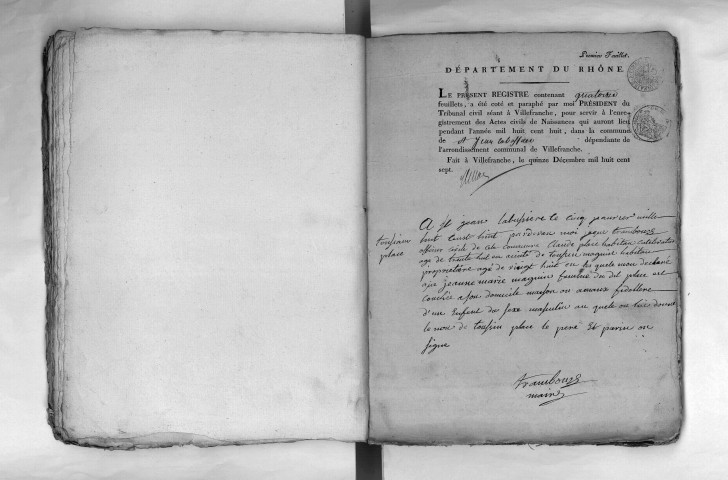 Premier Feuillet.
DÉPARTEMENT DU RHÔNE
LE PRÉSENT REGISTRE contenant quatorze
feuillets, a été coté et paraphé par moi PRÉSIDENT du
Tribunal civil séant à Villefranche, pour servir à l'enre-
gistrement des Actes civils de Naissances qui auront lieu
pendant l'année mil huit cent huit, dans la commune
de St Jean dépendante de
l'arrondissement communal de Villefranche.
Fait à Villefranche, le quinze Décembre mil huit cent
sept.
toussain
place
A St jean labussiere le cinq janvier mille
huit cent huit devan moi jean trambouze
officier civile de cete commune claude place
age de trante huit en toussen maguin
proprietère age de vingt huit an les quele mon declaré
que jeanne marie maguin famme du dit place est
a son domicile maison
d'un Enfant du sexe masculin au quele on lui donné
le non de toussin place le pere Et parin on
signe
trambouze
maire